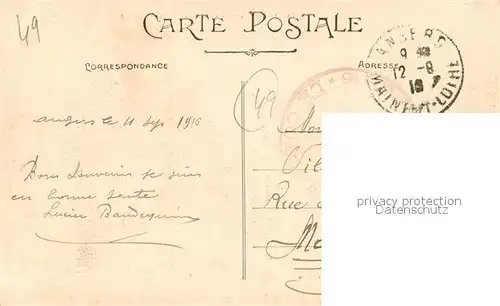 49
CARTE POSTALE
CORRESPONDANCE
ADRESSE
ANGERS
9
12 - 8
MAINE-ET-LOIRE
49
angers le 11 Sep 1916
Bons Souvenirs je suis
en bonne sante
Lucien
Vil
Rue
privacy protection
Datenschutz